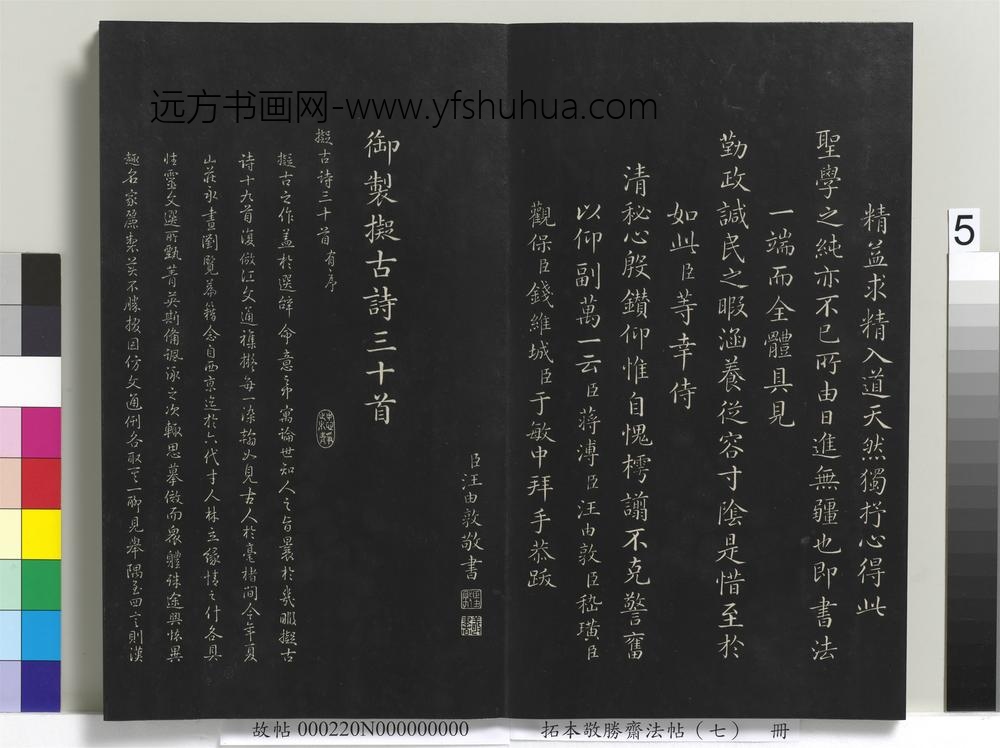 远方书画网-www.yfshuhua.com
精益求精入道天然獨抒心得此
聖學之純亦不已所由日進無疆也即書法
一端而全體具見
勤政諴民之暇涵養從容寸陰是惜至於
如此臣等幸侍
清秘心殷鑽仰惟自愧樗譾不克警奮
以仰副萬一云臣蔣溥臣汪由敦臣嵇璜臣
觀保臣錢維城臣于敏中拜手恭跋
臣汪由敦敬書
御製擬古詩三十首
擬古詩三十首有序
擬古之作蓋於選辭命意之中寓論世知人之旨曩於幾暇擬古
詩十九首復倣江文通雜擬每一染翰如見古人於毫楮間今年夏
山莊永晝瀏覽舊籍念自西京迄於六代才人林立緣情之什各具
性靈文選所甄菁英斯備諷泳之次輒思摹倣而衆體殊途興悰異
趣名家篇製美不勝掇因仿文通例各取其一聊見舉隅至四言則漢
5
故帖 000220N000000000
拓本敬勝齋法帖(七) 冊